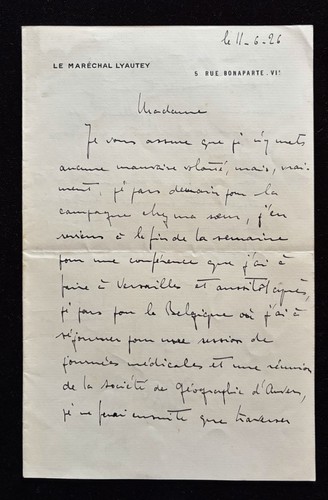 le 11-6-26
LE MARÉCHAL LYAUTEY
5 RUE BONAPARTE. VIᵉ
Madame
Je vous assure que je n'y mets
aucune mauvaise volonté, mais, vrai-
ment, je pars demain pour la
campagne chez ma sœur, j'en
reviens à la fin de la semaine
pour une conférence que j'ai à
faire à Versailles et aussitôt après,
je pars pour la Belgique où j'ai à
séjourner pour une session de
journées médicales et une réunion
de la société de géographie d'Anvers,
je ne ferai ensuite que traverser